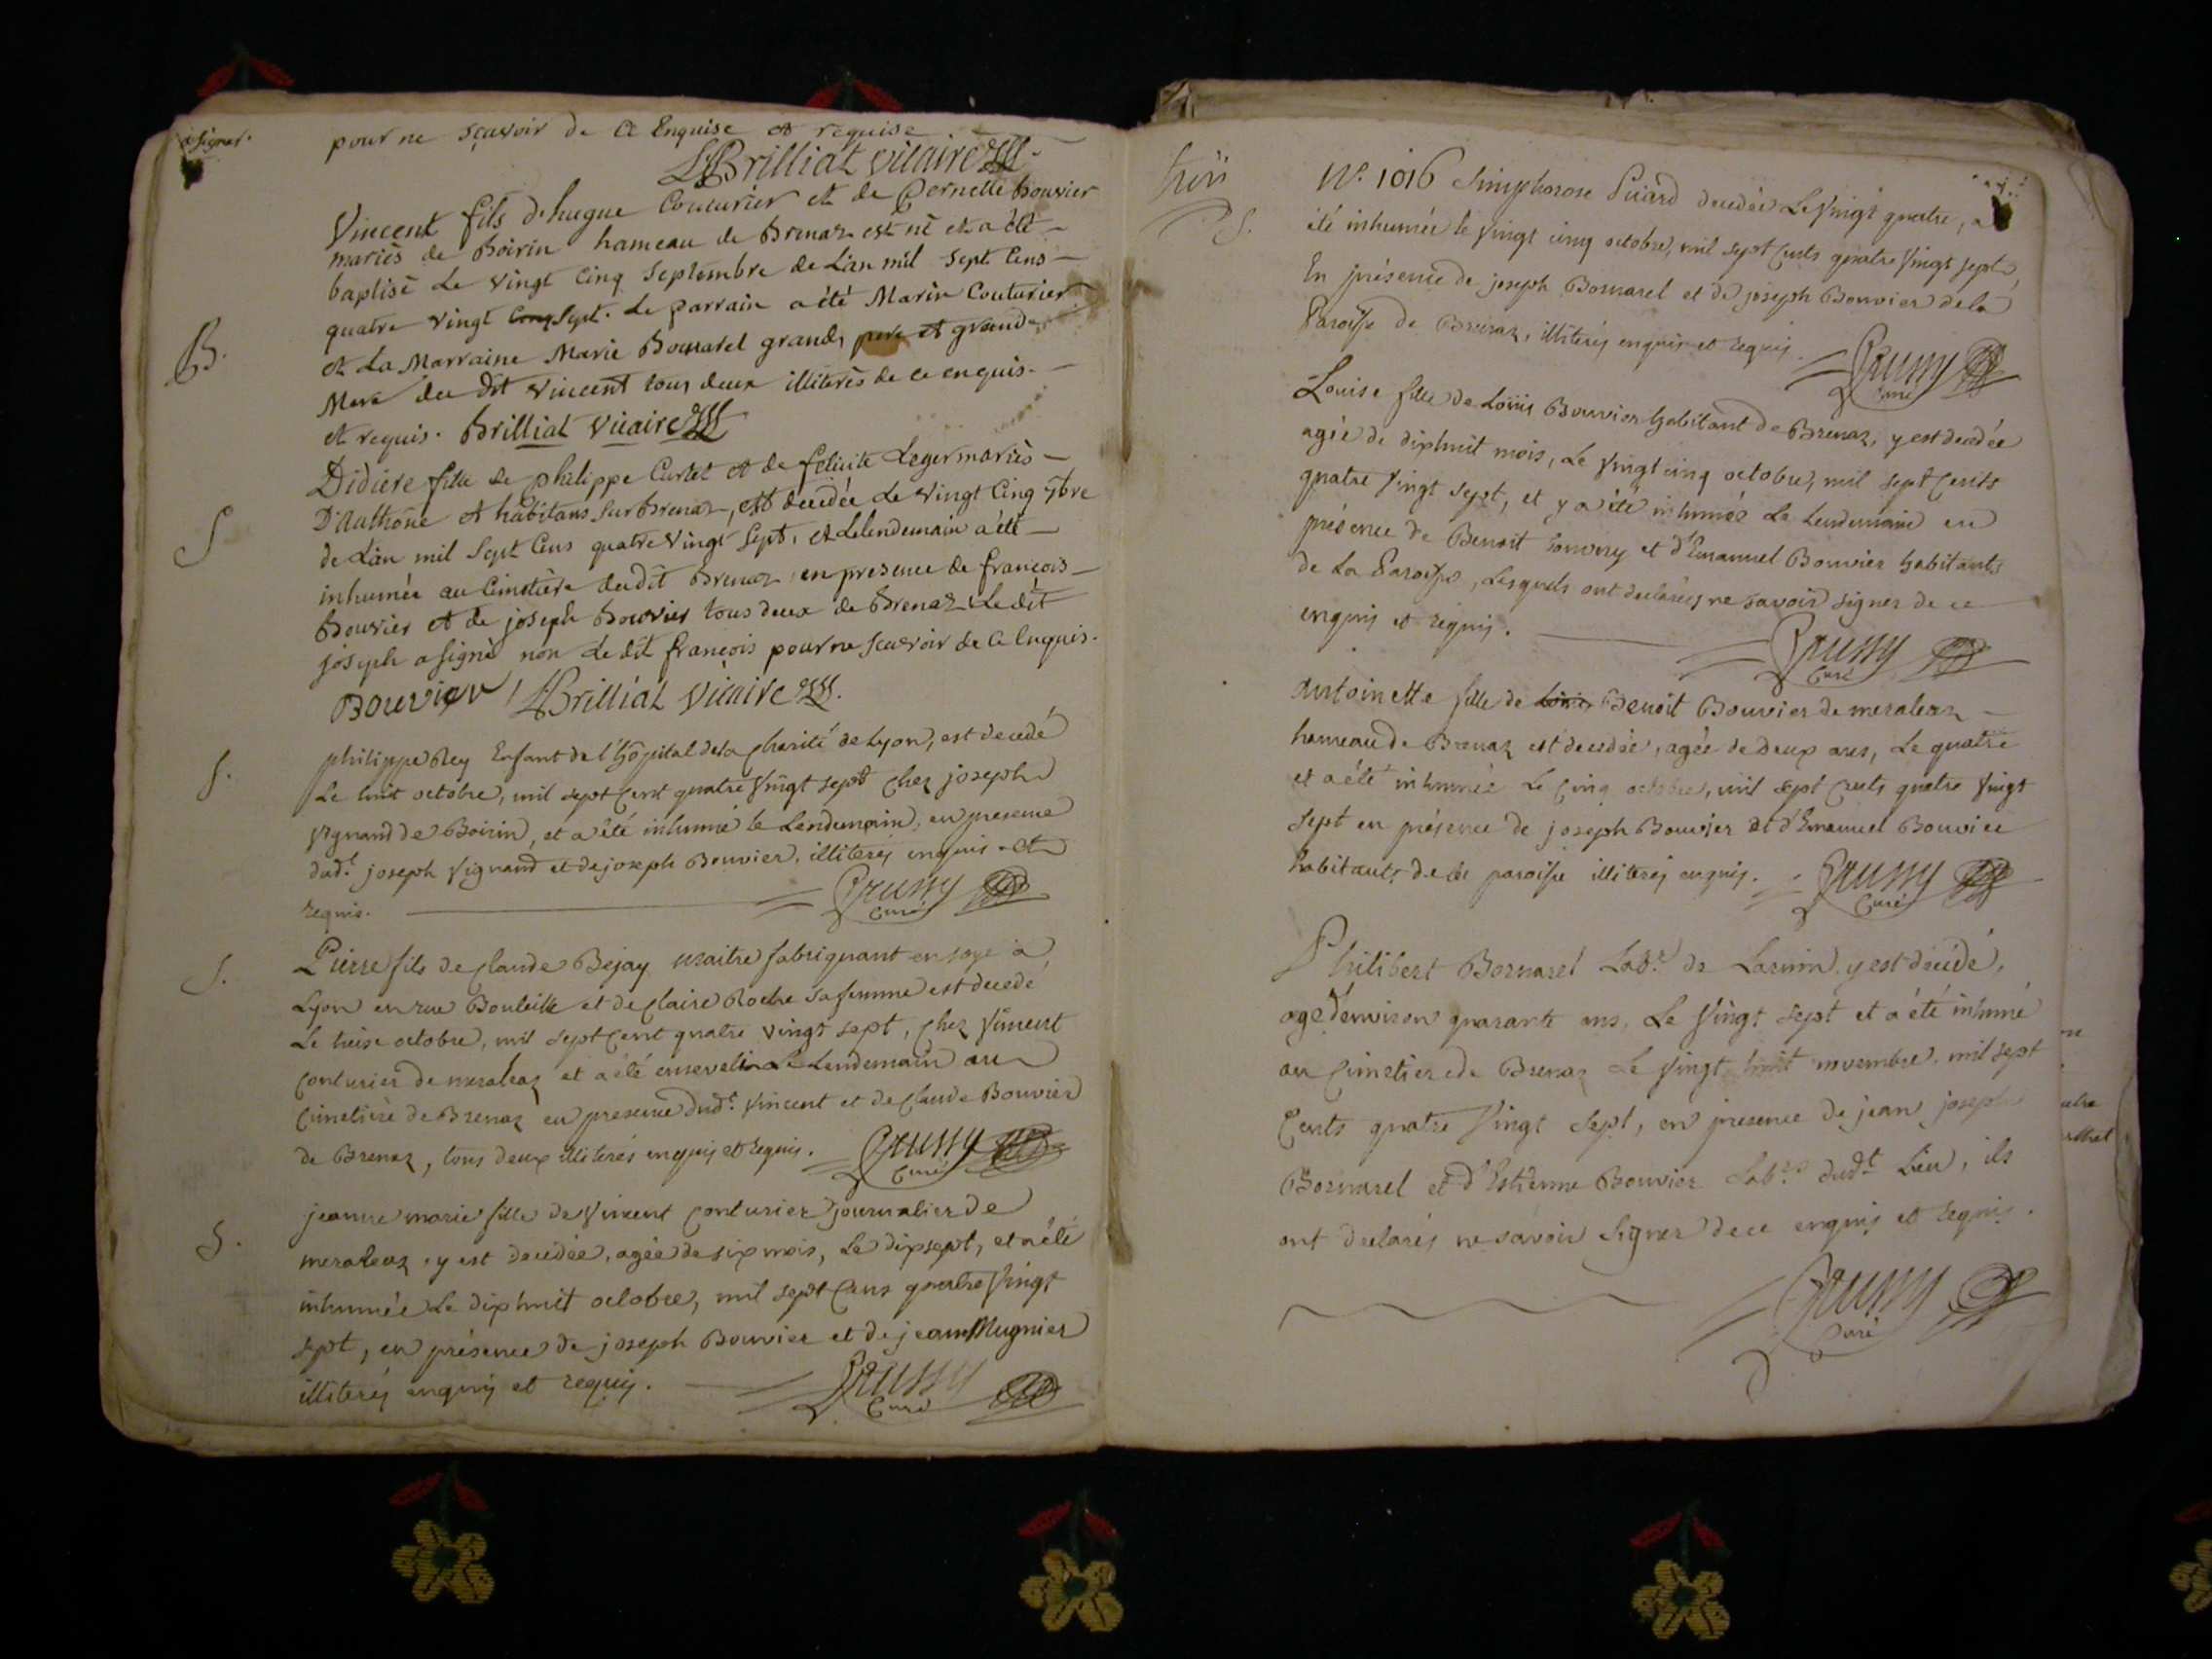 a signer.
pour ne sçavoir de ce Enquise et requise
Brilliat vicaire
Vincent fils d'hugue Couturier et de Pernette bouvier
mariés de Boirin hameau de Brenaz est né et a été
baptisé Le vingt cinq septembre de L'an mil sept Cens
quatre vingt sept. Le parrain a été Marin Couturier
B.
et La Marraine Marie Bornarel grand, pere et grand
Mere du dit vincent tous deux illiterés de ce enquis.
et requis. Brilliat vicaire
Didiere fille de philippe Curtet et de felicité Leger mariés
D'Authone et habitans sur Brenaz, est decedée Le vingt Cinq 7bre
S
de L'an mil sept Cens quatre vingt sept, et Lelendemain a été
inhumée au Cimetière dudit Brenaz en presence de françois
Bouvier et de joseph Bouvier tous deux de Brenaz. Le dit
joseph a signé non Le dit françois pour ne scavoir de ce Enquis.
Bouvier Brilliat Vicaire
S.
philippe Rey Enfant de l'hôpital dela Charité de Lyon, est decedé
Le huit octobre, mil sept Cent quatre vingt sept Chez joseph
vignand de Boirin, et a été inhumé le Lendemain, en presence
dudt. joseph vignand et de joseph Bouvier, illiterés enquis et
requis. Crussy
Curé
S.
Pierre fils de Claude Bejay maitre fabriquant en soye a
Lyon en rue Bouteille et de Claire Roche sa femme est decedé
Le treise octobre, mil sept Cent quatre vingt sept, Chez vincent
Couturier de meraleaz et a été enseveli Le Lendemain au
Cimetière de Brenaz en presence dudt. vincent et de Claude Bouvier
de Brenaz, tous deux illiterés enquis et requis. Crussy
Curé
S.
jeanne marie fille de vincent Couturier journalier de
meraleaz, y est decedée, agée de six mois, Le dixsept, et a été
inhumée Le dixhuit octobre, mil sept Cens quatre vingt
sept, en présence de joseph Bouvier et de jean Mugnier
illiterés enquis et requis. Crussy
Curé
S.
N.o 1016 Simphorose Picard decedée Le vingt quatre, a
été inhumée le vingt cinq octobre, mil sept Cents quatre vingt sept,
En présence de joseph Bornarel et de joseph Bouvier de la
Paroisse de Brenaz, illiterés enquis et requis. Crussy
Curé
Louise fille de Loüis Bouvier habitant de Brenaz, y est decedée
agée de dixhuit mois, Le vingt cinq octobre, mil sept Cents
quatre vingt sept, et y a été inhumée Le Lendemain en
présence de Benoit et d'Emanuel Bouvier habitants
de La Paroisse, Lesquels ont declarés ne savoir signer de ce
enquis et requis. Crussy
Curé
Antoinette fille de Benoit Bouvier de meraleaz
hameau de Brenaz est decedée, agée de deux ans, Le quatre
et a été inhumée Le Cinq octobre, mil sept Cents quatre vingt
sept en présence de joseph Bouvier et d'Emanuel Bouvier
habitants de la paroisse illiterés enquis. Crussy
Curé
Philibert Bornarel Labr. de y est decédé,
agé d'environ quarante ans, Le vingt sept et a été inhumé
au Cimetiere de Brenaz Le vingt huit novembre, mil sept
Cents quatre vingt sept, en presence de jean joseph
Bornarel et d'Estienne Bouvier Labrs. dudt. Lieu, ils
ont declarés ne savoir signer de ce enquis et requis.
Crussy
Curé